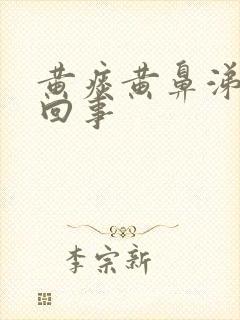 黄痰黄鼻涕
回事
李宗新